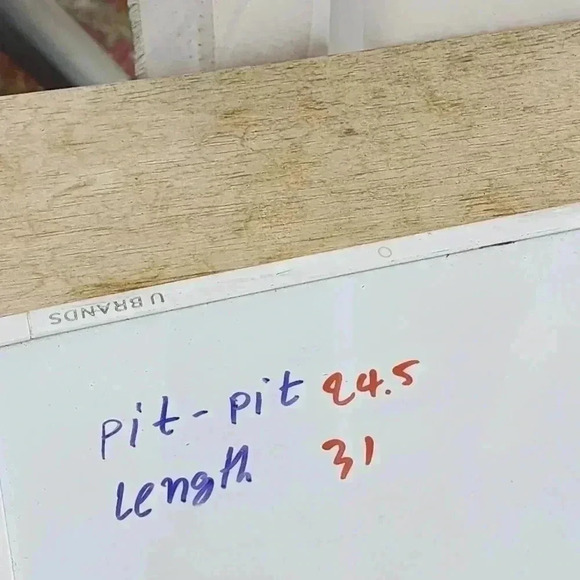 U BRANDS
pit - pit 24.5
Length 31